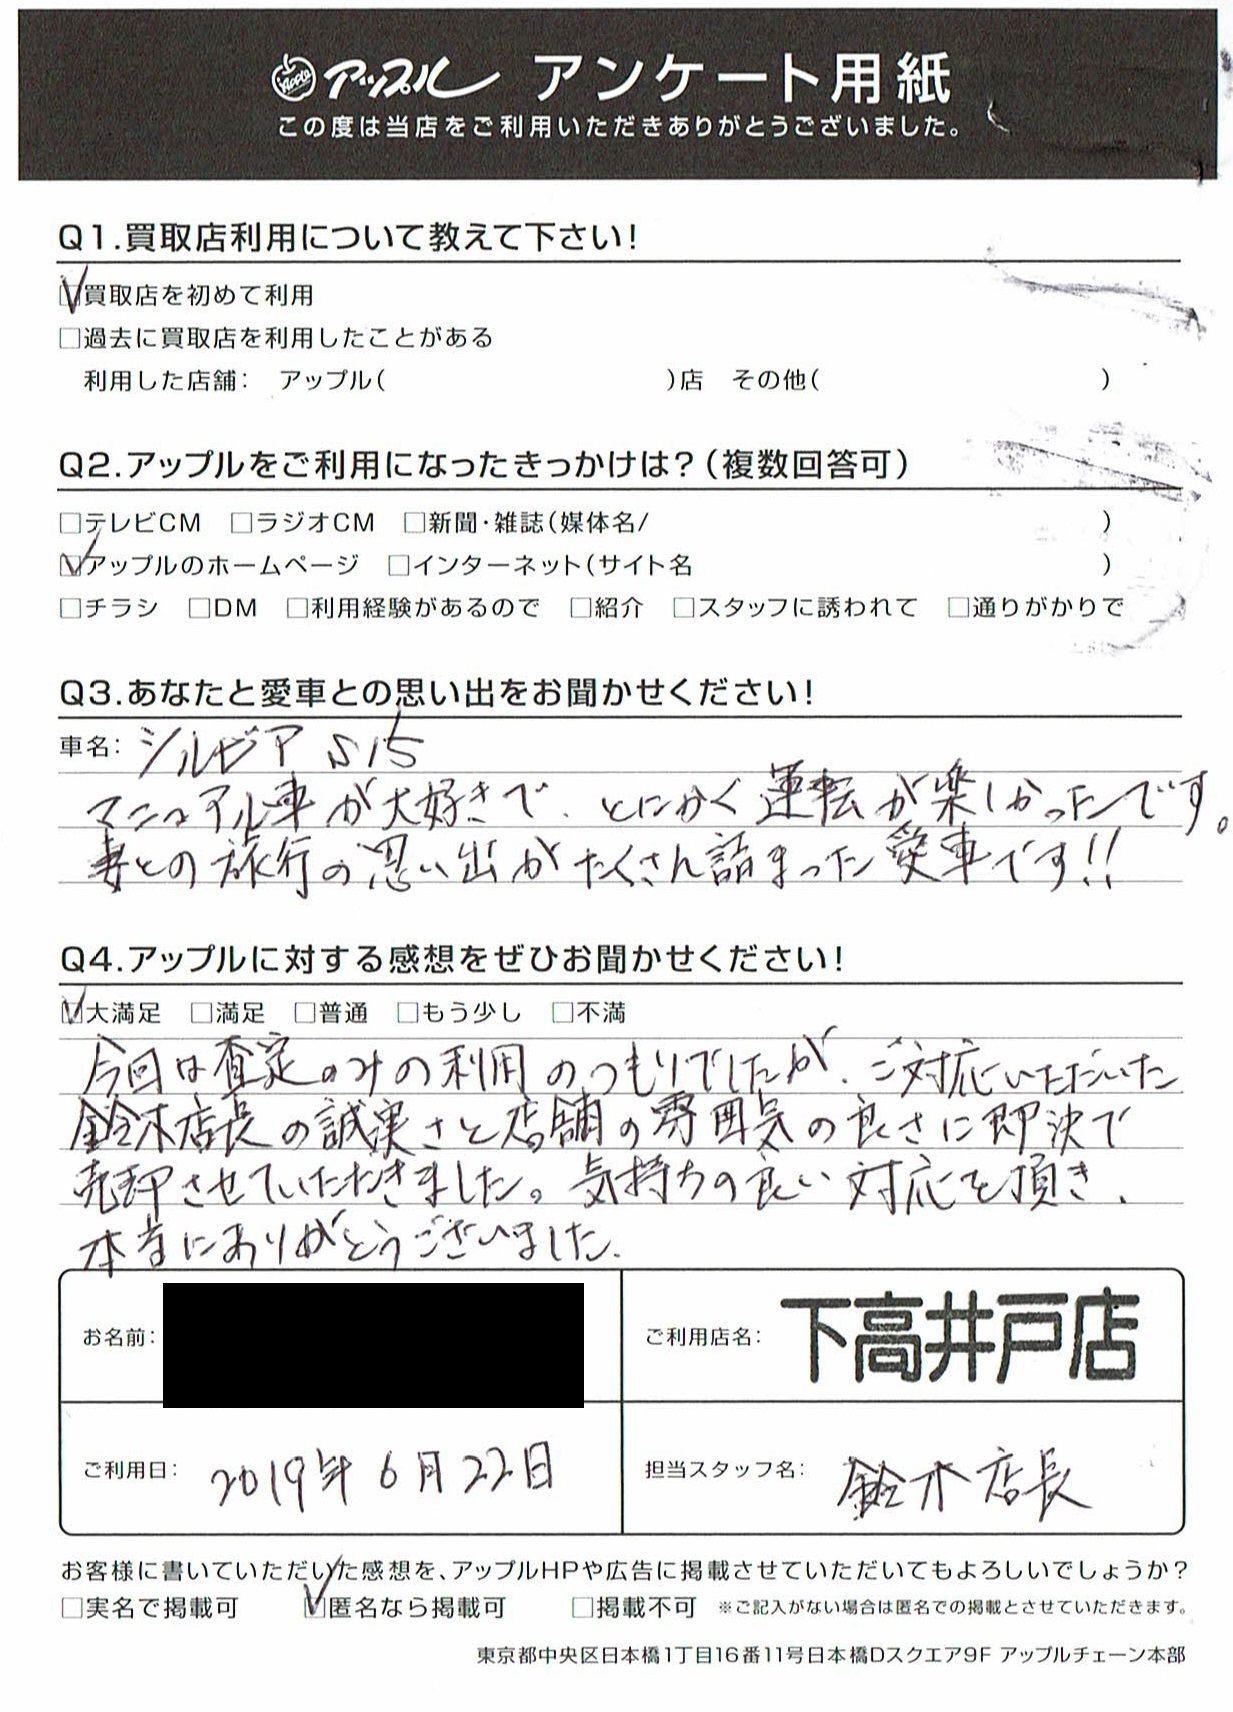 Apple アップル アンケート用紙
この度は当店をご利用いただきありがとうございました。
Q1.買取店利用について教えて下さい！
☑買取店を初めて利用
□過去に買取店を利用したことがある
利用した店舗： アップル（ ）店 その他（ ）
Q2.アップルをご利用になったきっかけは？（複数回答可）
□テレビCM □ラジオCM □新聞・雑誌（媒体名/ ）
☑アップルのホームページ □インターネット（サイト名 ）
□チラシ □DM □利用経験があるので □紹介 □スタッフに誘われて □通りがかりで
Q3.あなたと愛車との思い出をお聞かせください！
車名： シルビア S15
マニュアル車が大好きで、とにかく運転が楽しかったです。
妻との旅行の思い出がたくさん詰まった愛車です!!
Q4.アップルに対する感想をぜひお聞かせください！
☑大満足 □満足 □普通 □もう少し □不満
今回は査定のみの利用のつもりでしたが、ご対応いただいた
鈴木店長の誠実さと店舗の雰囲気の良さに即決で
売却させていただきました。気持ちの良い対応を頂き、
本当にありがとうございました。
お名前： ご利用店名： 下高井戸店
ご利用日： 2019年6月22日 担当スタッフ名： 鈴木店長
お客様に書いていただいた感想を、アップルHPや広告に掲載させていただいてもよろしいでしょうか？
□実名で掲載可 ☑匿名なら掲載可 □掲載不可 ※ご記入がない場合は匿名での掲載とさせていただきます。
東京都中央区日本橋1丁目16番11号日本橋Dスクエア9F アップルチェーン本部